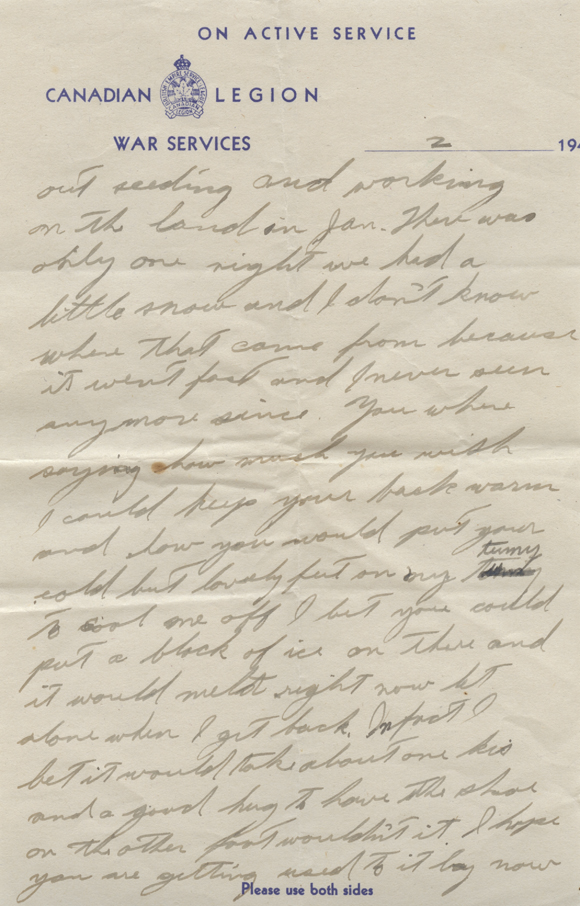 ON ACTIVE SERVICE
CANADIAN LEGION
WAR SERVICES
2 194
out seeding and working
on the land in Jan. There was
only one night we had a
little snow and I don't know
where that came from because
it went fast and I never seen
any more since. You where
saying how much you wish
I could keep your back warm
and how you would put your
cold but lovely feet on my tumy
to cool me off I bet you could
put a block of ice on there and
it would melt right now let
alone when I get back. In fact I
bet it would take about one kis
and a good hug to have the shoe
on the other foot wouldn't it. I hope
you are getting used to it by now
Please use both sides